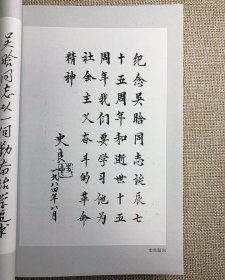 纪念吴晗同志诞辰七
十五周年和逝世十五
周年我们要学习他为
社会主义奋斗的革命
精神
史良
一九八四年八月
吴晗同志从一个勤奋治学
史良题词